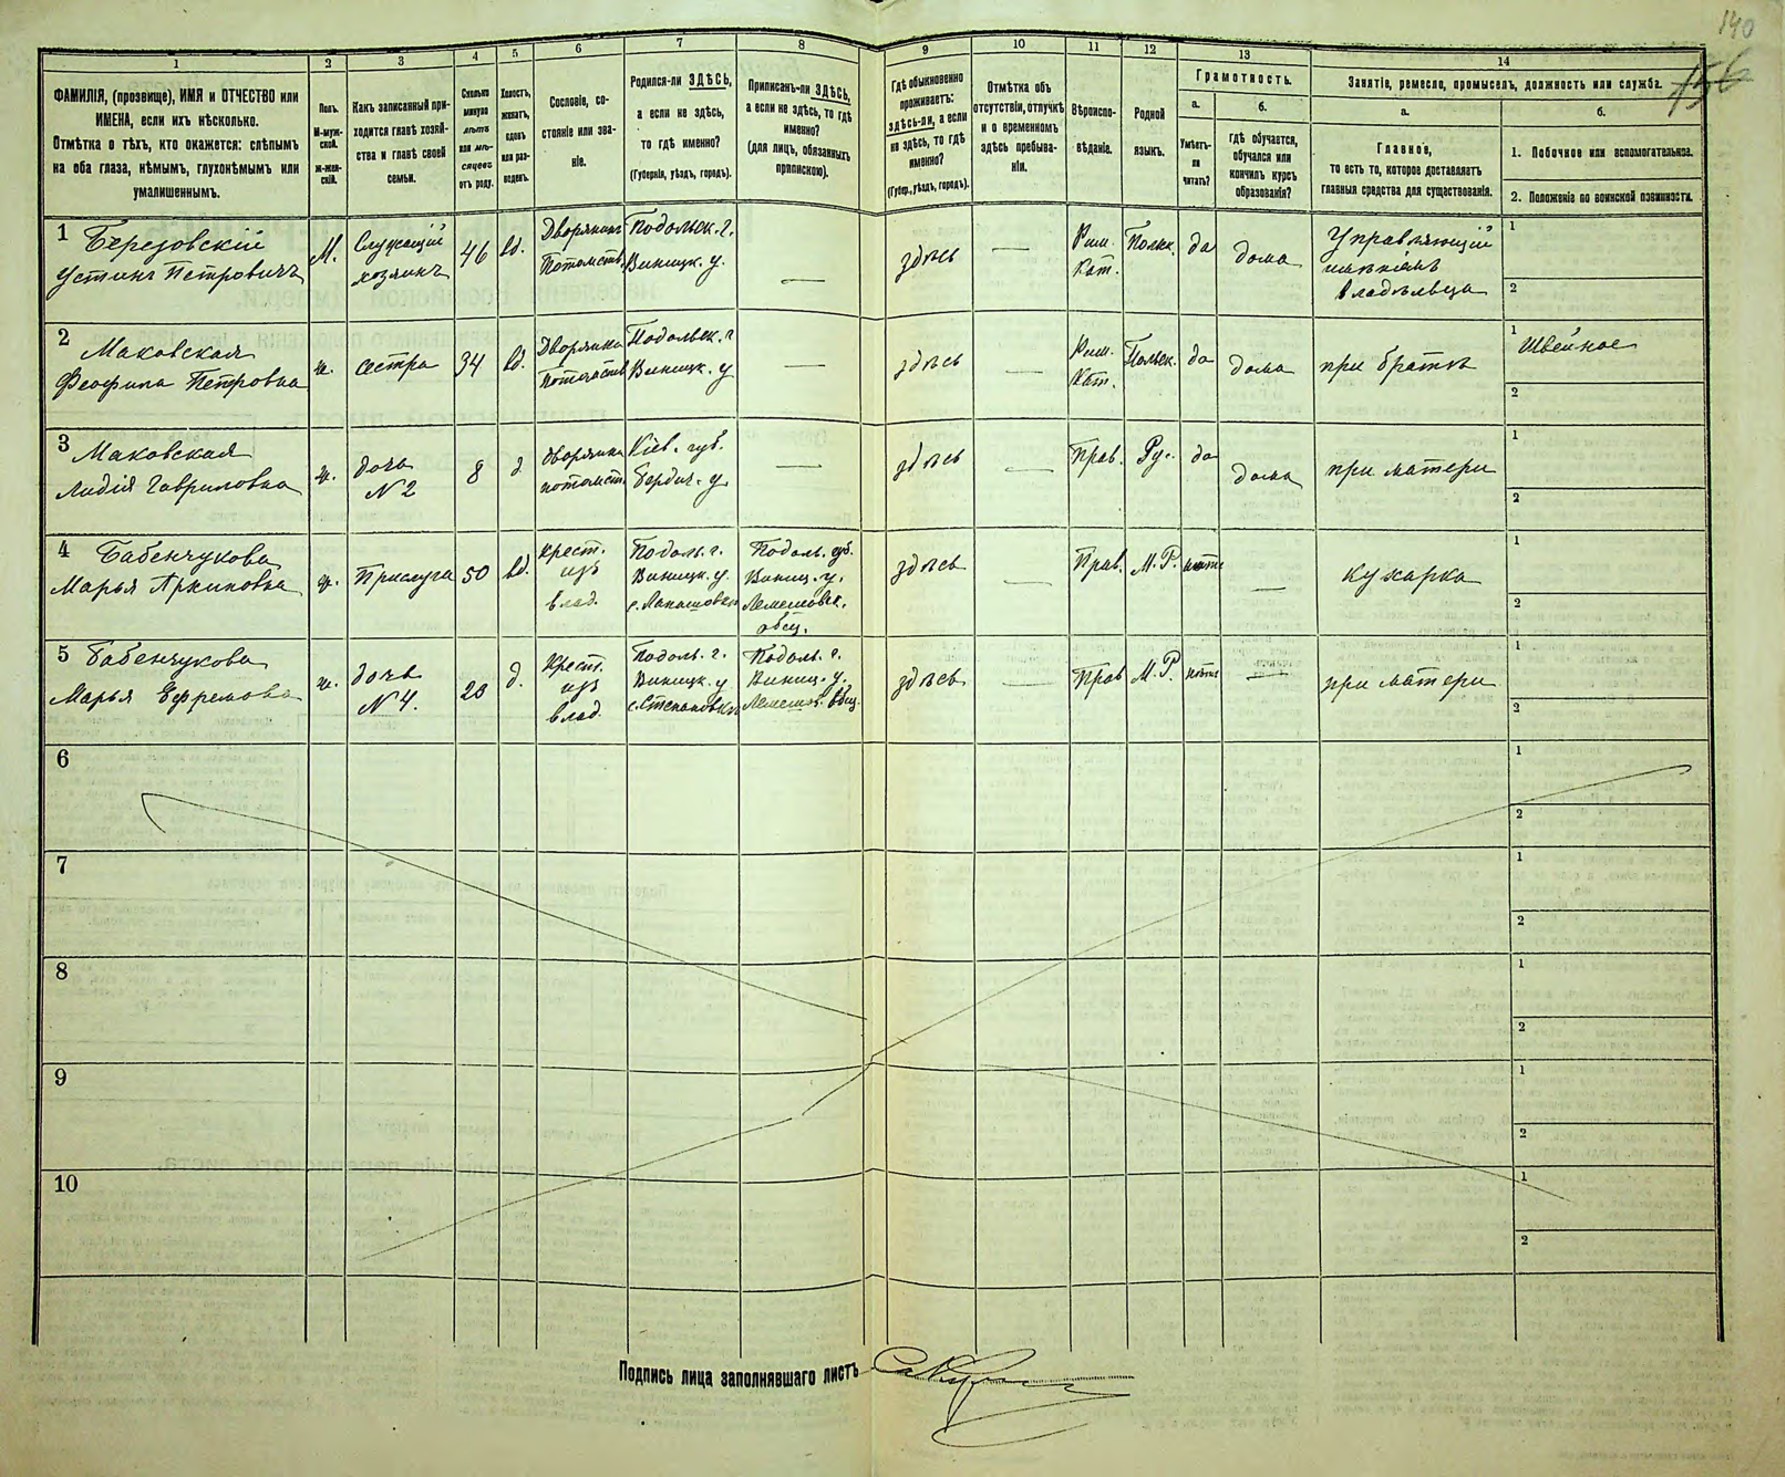 140
156
1
2
3
4
5
6
7
8
9
10
11
12
13
14
ФАМИЛІЯ, (прозвище), ИМЯ и ОТЧЕСТВО или
ИМЕНА, если ихъ нѣсколько.
Отмѣтка о тѣхъ, кто окажется: слѣпымъ
на оба глаза, нѣмымъ, глухонѣмымъ или
умалишеннымъ.
Полъ.
М-муж-
ской.
ж-жен-
скій.
Какъ записанный при-
ходится главѣ хозяй-
ства и главѣ своей
семьи.
Сколько
минуло
лѣтъ
или мѣ-
сяцевъ
отъ роду.
Холостъ,
женатъ,
вдовъ
или раз-
веденъ.
Сословіе, со-
стояніе или зва-
ніе.
Родился-ли ЗДѢСЬ,
а если не здѣсь,
то гдѣ именно?
(Губернія, уѣздъ, городъ).
Приписанъ-ли ЗДѢСЬ,
а если не здѣсь, то гдѣ
именно?
(для лицъ, обязанныхъ
припискою).
Гдѣ обыкновенно
проживаетъ:
здѣсь-ли, а если
не здѣсь, то гдѣ
именно?
(Губер., уѣздъ, городъ).
Отмѣтка объ
отсутствіи, отлучкѣ
и о временномъ
здѣсь пребыва-
ніи.
Вѣроиспо-
вѣданіе.
Родной
языкъ.
Грамотность.
а.
Умѣетъ-
ли
читать?
б.
гдѣ обучается,
обучался или
кончилъ курсъ
образованія?
Занятіе, ремесло, промыселъ, должность или служба.
а.
Главное,
то есть то, которое доставляетъ
главныя средства для существованія.
б.
1. Побочное или вспомогательное.
2. Положеніе по воинской повинности.
1 Березовскій
Устинъ Петровичъ
М.
Служащій
хозяинъ
46
вд.
Дворянинъ
Потомств.
Подольск. г.
Виницк. у.
здѣсь
Рим.
Кат.
Польск.
да
дома
Управляющій
имѣніемъ
владѣльца
1
2
2 Маковская
Феофила Петровна
ж.
сестра
34
вд.
Дворянка
потомств
Подольск. г
Виницк. у
здѣсь
Рим.
Кат.
Польск.
да
дома
при братѣ
1 Швейное
2
3 Маковская
Лидія Гавриловна
ж.
дочь
N 2
8
д
дворянка
потомст.
Кіев. губ.
Бердич. у.
здѣсь
Прав.
Рус.
да
дома
при матери
1
2
4 Бабенчукова
Марья
ж.
Прислуга
50
вд.
крест.
изъ
влад.
Подоль. г.
Виницк. у.
Подоль. губ.
Виниц. у.
Лемешовск.
общ.
здѣсь
Прав.
М. Р.
нѣтъ
кухарка
1
2
5 Бабенчукова
Марья Ефремова
ж.
дочь
N 4.
д.
Крест.
изъ
влад.
Подоль. г.
Виницк. у
с. Степановки
Подоль. г.
Виниц. у.
Лемешов. общ.
здѣсь
Прав
М. Р.
нѣтъ
при матери
1
2
6
1
2
7
1
2
8
1
2
9
1
2
10
1
2
Подпись лица заполнявшаго листъ